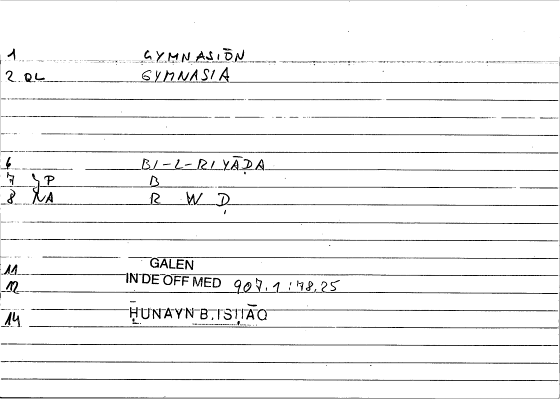 1 GYMNASIŌN
2 QL GYMNASIA
6 BI-L-RIYĀḌA
7 JP B
8 NA R W Ḍ
11 GALEN
12 IN DE OFF MED 907.1:78.25
14 ḤUNAYN B. ISḤĀQ